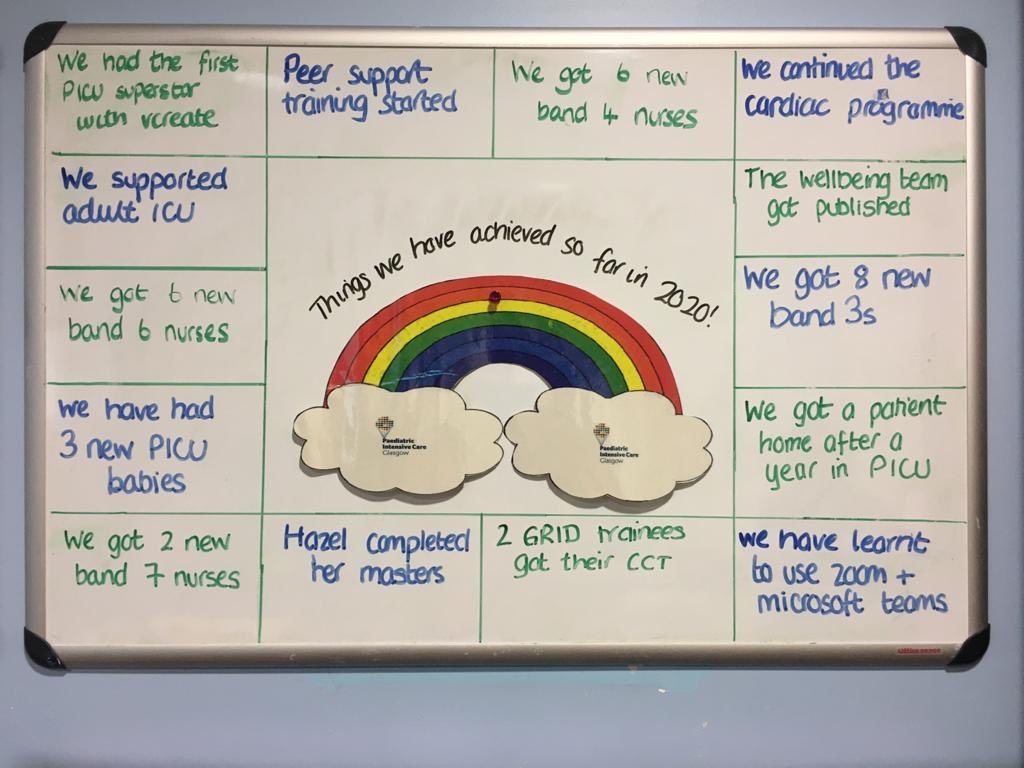 We had the first
PICU superstar
with vcreate
Peer support
training started
We got 6 new
band 4 nurses
We continued the
cardiac programme
We supported
adult ICU
The wellbeing team
got published
Things we have achieved so far in 2020!
We got 6 new
band 6 nurses
We got 8 new
band 3s
we have had
3 new PICU
babies
We got a patient
home after a
year in PICU
Paediatric
Intensive Care
Glasgow
Paediatric
Intensive Care
Glasgow
We got 2 new
band 7 nurses
Hazel completed
her masters
2 GRID trainees
got their CCT
we have learnt
to use zoom +
microsoft teams